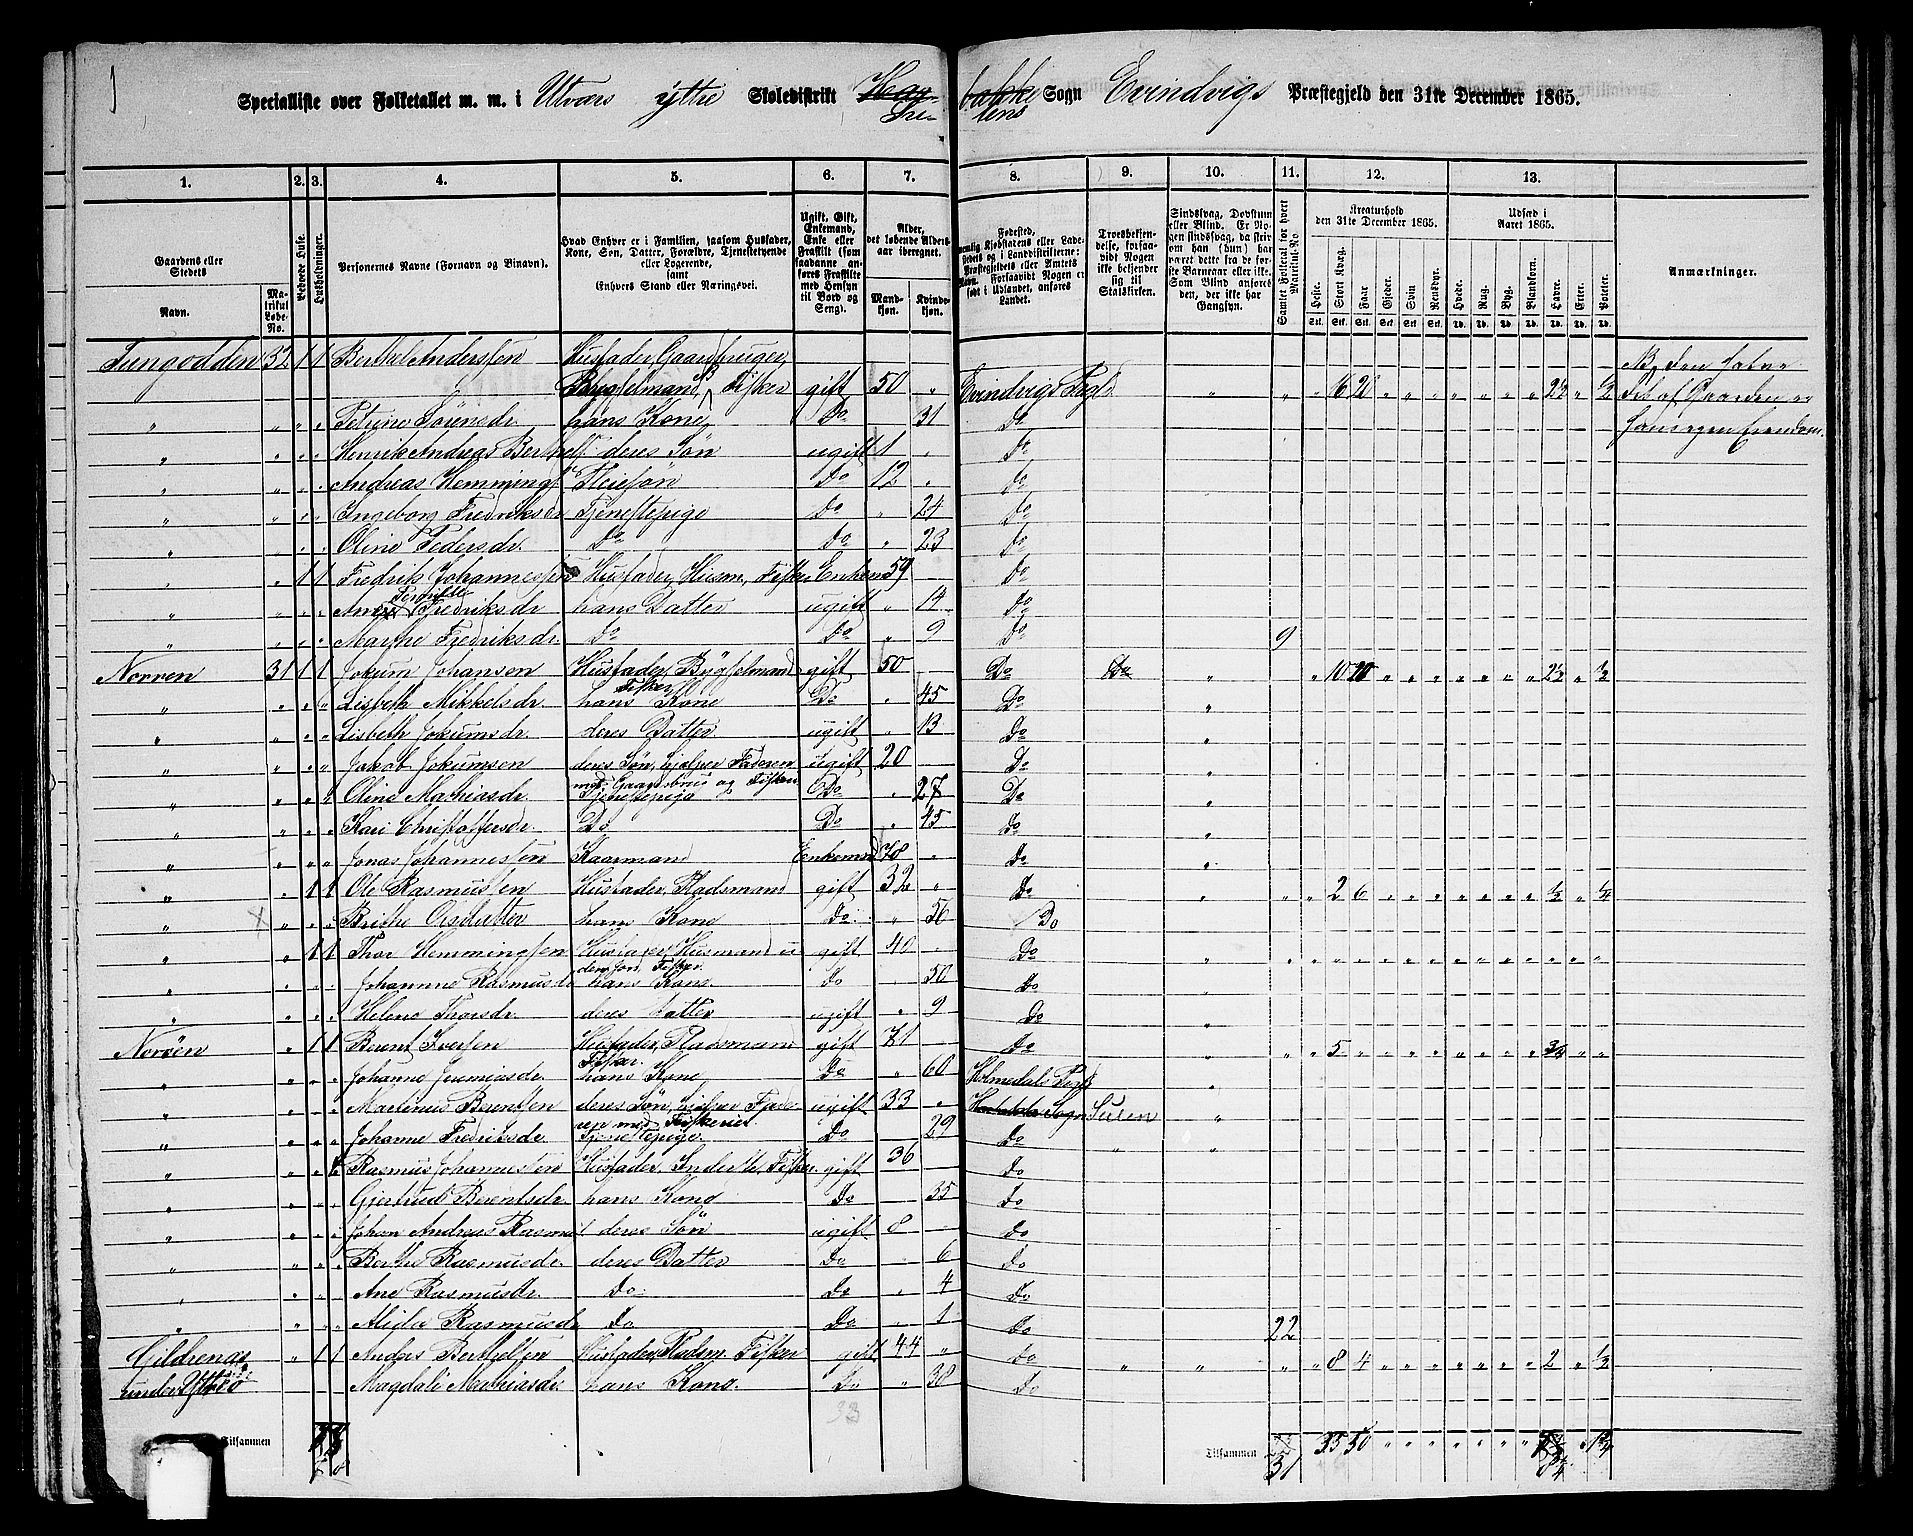 Specialliste over Folketallet m. m. i Utvær ytre Skoledistrikt Sogn Evindvigs Præstegjeld den 31te December 1865.
1. 2. 3. 4. 5. 6. 7. 8. 9. 10. 11. 12. 13.
Gaardens eller Stedets Navn. Matrikul Løbe-No. Beboede Huse. Husholdninger. Personernes Navne (Fornavn og Binavn). Hvad Enhver er i Familien, saasom Husfader, Kone, Søn, Datter, Forældre, Tjenestetyende eller Logerende, samt Enhvers Stand eller Næringsvei. Ugift, Gift, Enkemand, Enke eller Fraskilt Alder, det løbende Alders-aar iberegnet. Mandkjøn. Kvindekjøn. Fødested, Troesbekjendelse, forsaavidt Nogen ikke bekjender sig til Statskirken. Sindssvag, Døvstum eller Blind. Kreaturhold den 31te December 1865. Heste. Stort Kvæg. Faar Gjeder. Svin Rensdyr. Udsæd i Aaret 1865. Hvede. Rug. Byg. Blandkorn. Havre. Erter. Poteter. Anmærkninger.
32 1 1 Berthel Anderssen Husfader, Gaardbruger
Bygselmand, Fisker gift 50 Evindvigs Pgl. 16 20 2½ ½
Petrine Sørensdr hans Kone Do 31 Do
Henrik Andreas Berthels. deres Søn ugift 1 Do
Andreas Hemmings. Pleiesøn Do 12 Do
Ingeborg Fredriksdr Tjenestepige Do 24 Do
Oline Pedersdr. Do Do 23 Do
1 1 Fredrik Johannessen Husfader, Husm., Fisker Enkem 59 Do
Fredriksdr hans Datter ugift 14 Do
Marthe Fredriksdr. Do Do 9 Do 9
Norøen 31 1 1 Jokum Johansen Husfader, Bygselmand gift 50 Do 10 20 2½ ½
Fisker
Lisbeth Mikkelsdr. hans Kone Do 45 Do
Lisbeth Jokumsdr. deres Datter ugift 13 Do
Jakob Jokumsen deres Søn, hjelper Faderen ugift 20 Do
med Gaardsbrug og Fisken
Oline Mathiasdr. Tjenestepige Do 27 Do
Kari Christoffersdr. Do Do 45 Do
Jonas Johannessen Kaarmand Enkemand 78 Do
1 1 Ole Rasmussen Husfader, Pladsmand gift 32 Do 2 6 ½ ¼
X Brithe hans Kone Do 56 Do
1 1 Thor Hemmingsen Husfader, Husmand u gift 40 Do
den Jord, Fisker.
Johanne Rasmusdr hans Kone. Do 50 Do
Helene Thorsdr. deres Datter ugift 9 Do
Norøen 1 1 Berent Iversen Husfader, Pladsmand gift 71 Do 5 ¾
Fisker
Johanne Jeremiasdr. hans Kone Do 60 Holmedals Pgl.
Martinus Berentsen deres Søn, hjelper Fade- ugift 33 Sogn Sulen
ren med Fiskeriet.
Johanne Fredriksdr. Tjenestepige. Do 29 Do
Rasmus Johannessen Husfader, Inderst, Fisker gift 36 Do
Gjertrud Berentsdr. hans Kone Do 35 Do
Johan Andreas Rasmus. deres Søn ugift 8 Do
Berthe Rasmusdr. deres Datter Do 6 Do
Ane Rasmusdr. Do. Do 4 Do
Rasmusdr Do Do 1 Do 22
Gildrenæs 1 1 Anders Berthelsen Husfader, Pladsm. Fisker gift 44 Do 8 4 2 ½
under Magdali Mathiasdr hans Kone. Do 38 Do
33
Tilsammen
Tilsammen 31 35 50 1¾